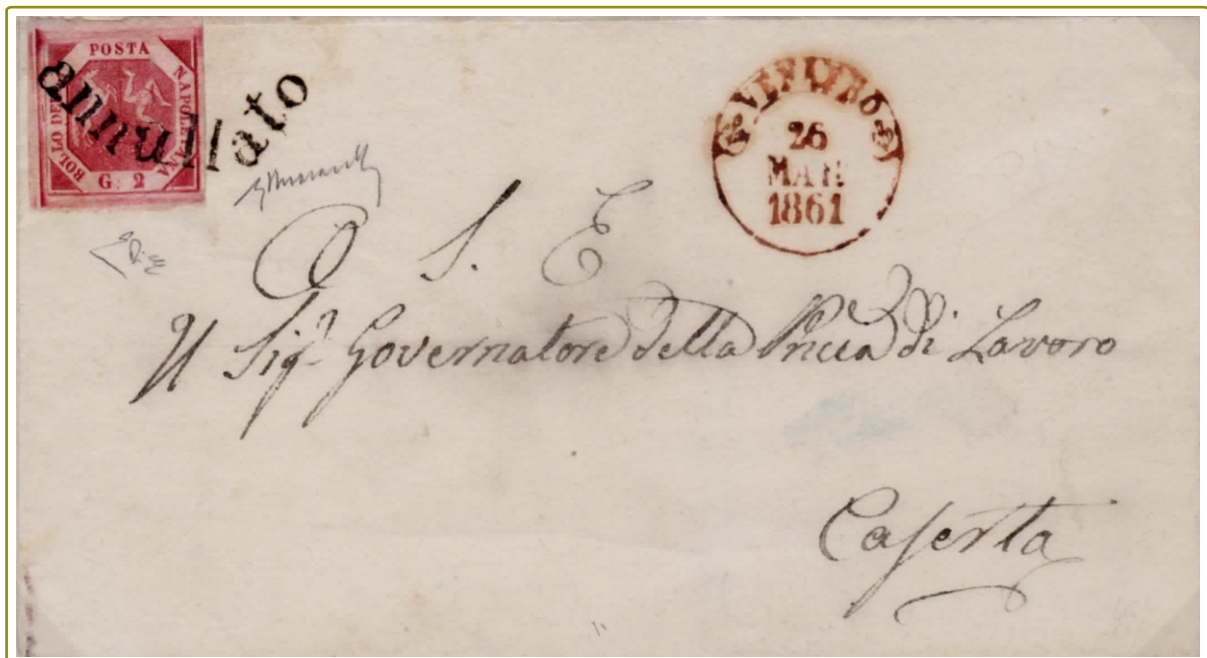 POSTA
NAPOLETANA
BOLLO DELLA
G. 2
annullato
26
MAR
1861
S. E.
Il Sig.r Governatore della Pncia di Lavoro
Caserta